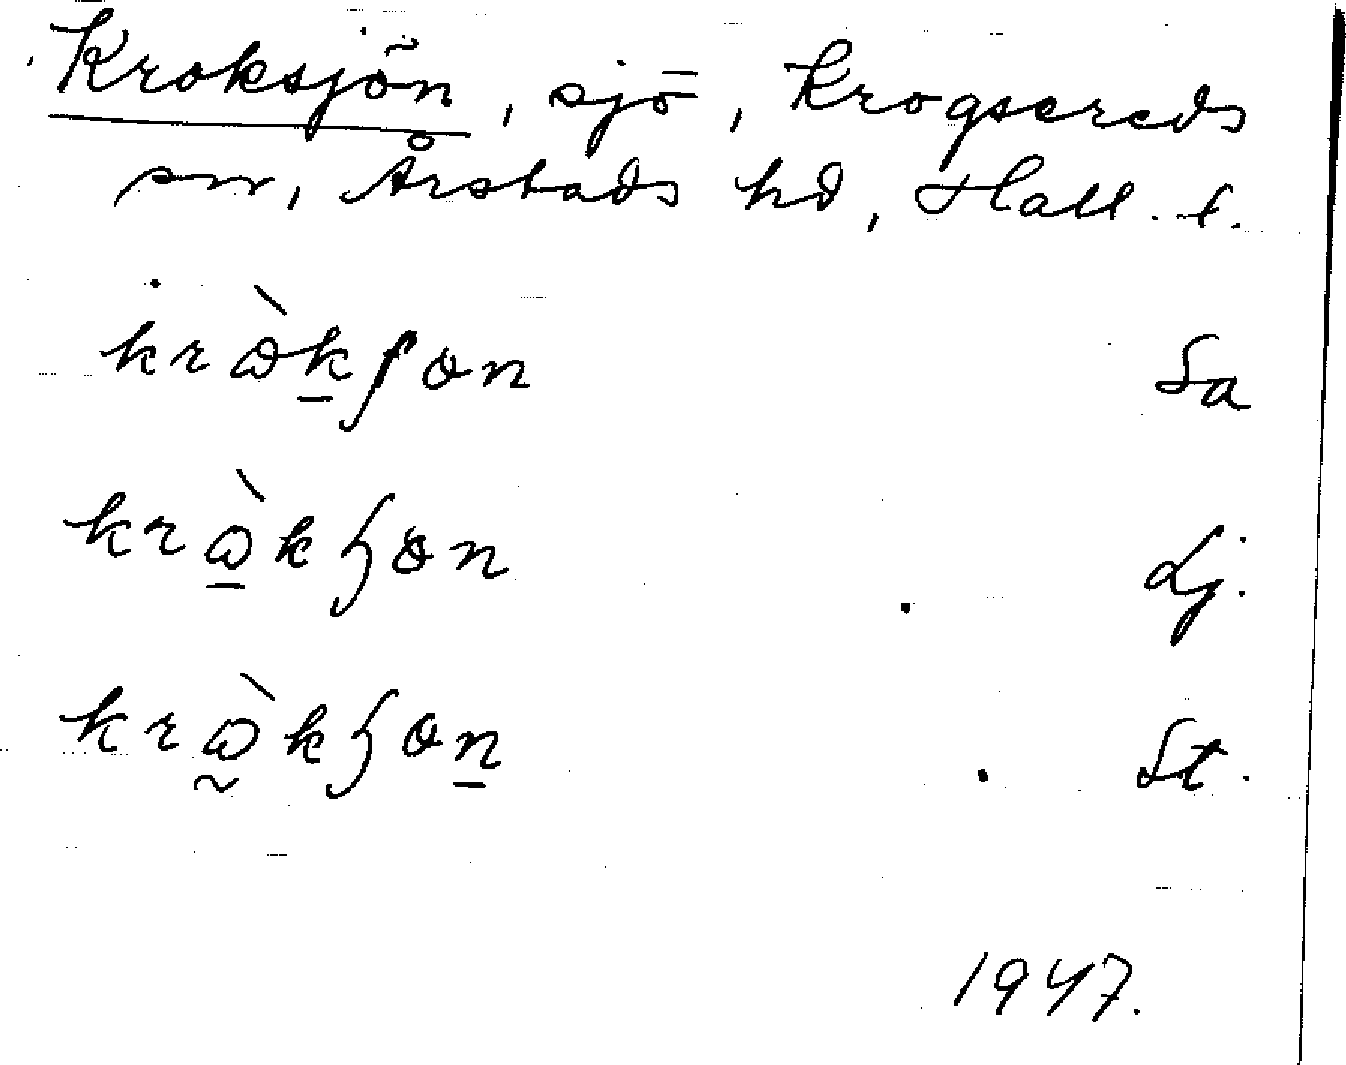 Kroksjön, sjö, Krogsereds
sn, Årstads hd, Hall. l.
krὼkʃɵn Sa
krὼkɧɵn Lj.
krὼkɧɵn St.
1947.